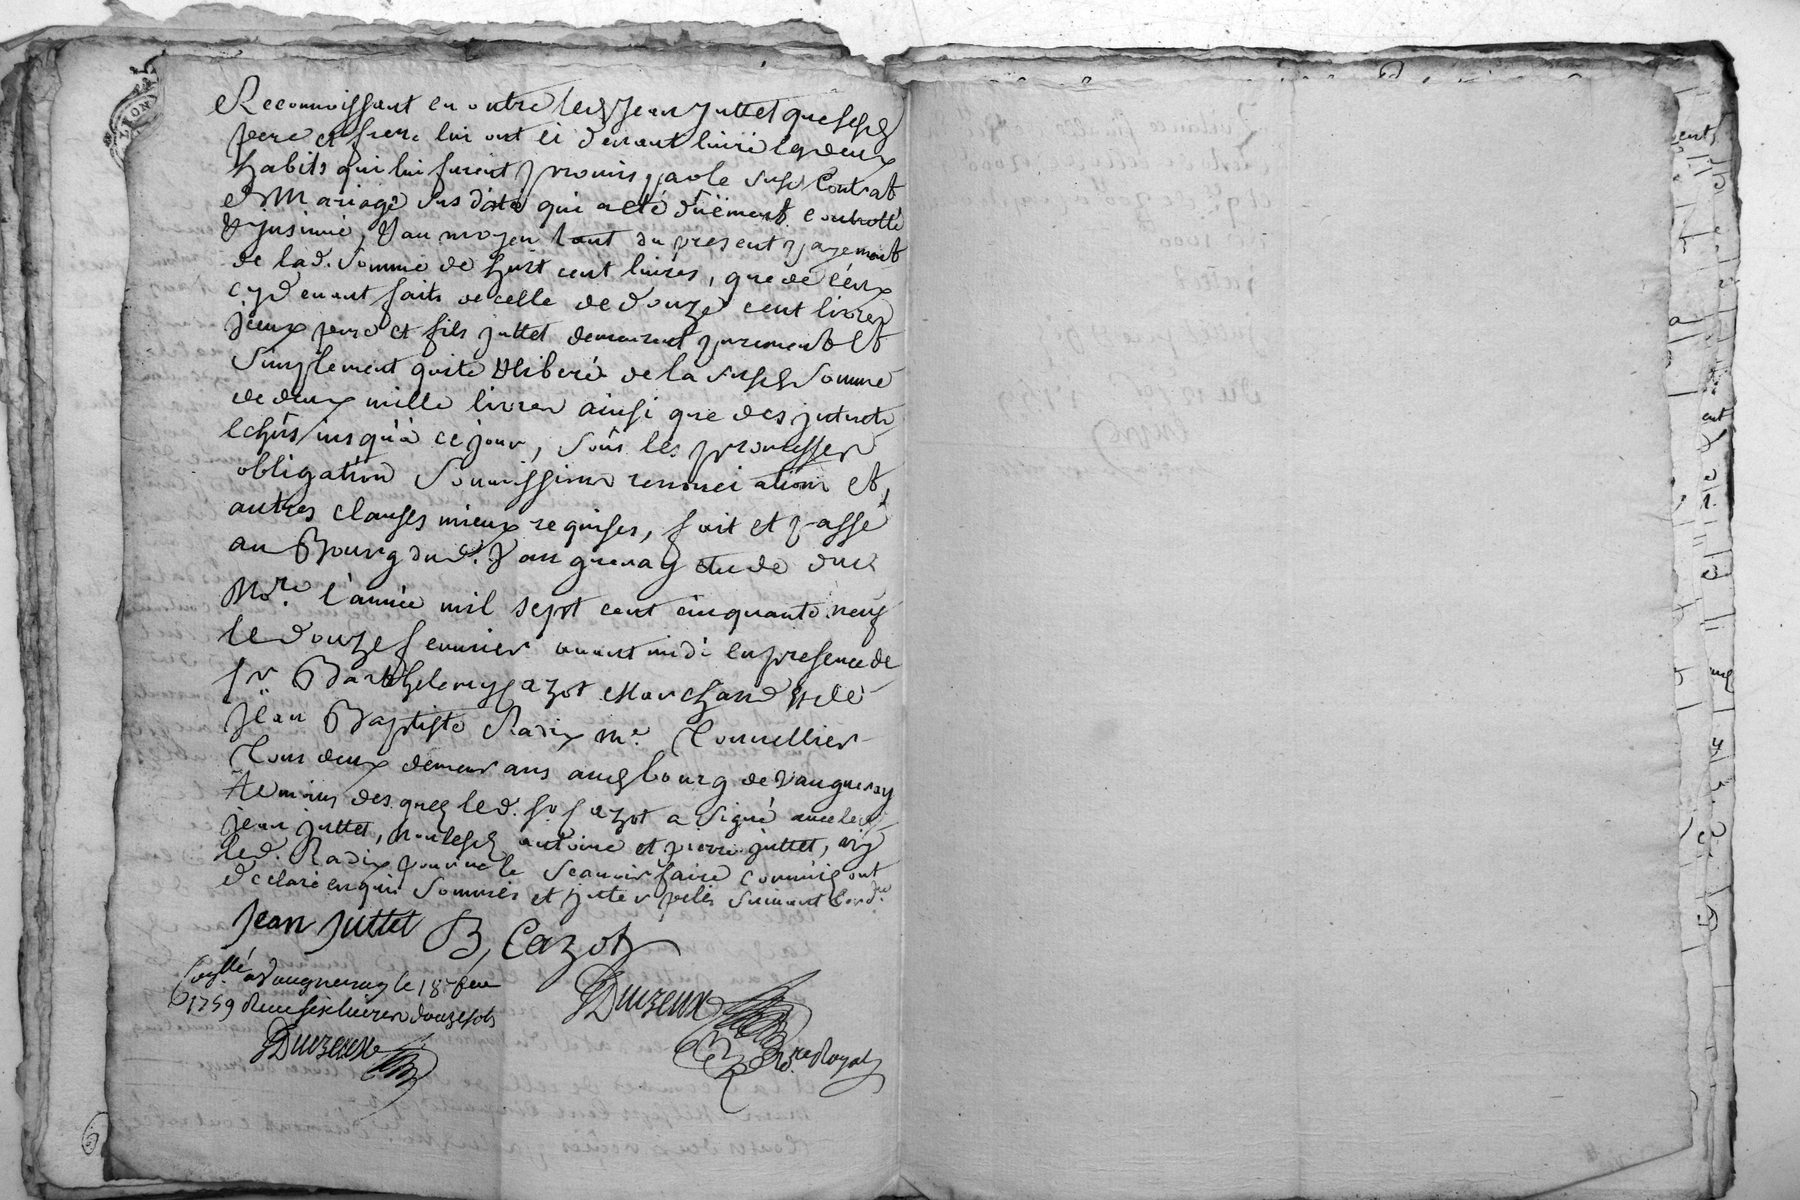 LYON
Reconnoissant en outre led Jean Juttet que sesd
pere et frere lui ont ci devant livré les deux
habits qui lui furent promis par le susd Contrat
de Mariage sus daté qui a été düement controllé
& jnsinué, & au moyen tant du present payement
de lad. Somme de huit cent livres, que de ceux
cy devant faits de celle de douze cent livres
jceux pere et fils juttet demeurent purement et
Simplement quite & liberé de la susd Somme
de deux mille livres ainsi que des jnterets
echûs jusqu'à ce jour, sous les promesses
obligation Soumissions renonciations et
autres clauses mieux requises, fait et passé
au Bourg dud. Vaugneray etude dud
Nore. l'année mil sept cent cinquante neuf
le douze fevrier avant midi en presence de
sr Barthelemy Cazot Marchand & de
Jean Baptiste Radix me. Tonnellier
Tous deux demeurans aud bourg de Vaugneray
Temoins desquels led. sr Cazot a signé avec led
jean juttet, non lesd antoine et pierre juttet, ny
led. Radix pour ne le Scavoir faire comme ils ont
declaré enquis Sommés et jnterpellés suivant l'ord.ce
Jean Juttet B, Cazot
Coñtllé a Vaugneray le 18e fevr
1759 Reçu six livres douze sols
Duizeux
Duizeux
Nore Royal